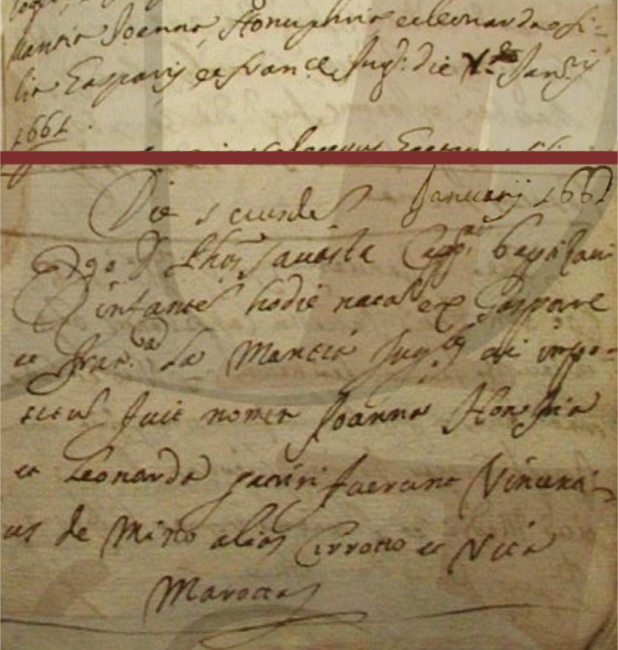 Mancia Joanna Honuphria et Leonarda fi-
lia Gasparis et Franc.e Jug: die Janrij
1661.
Die secunda Januarij 1661
Ego D. Thos Capp. baptizavi
infante hodie nata ex Gaspare
et Fran.a La Mancia Jug.bs cui impo-
situ fuit nomen Joanna Honofria
et Leonarda patrini fuerunt Vincenti-
us de Misto alias Cirrotto et Vita
Marotta